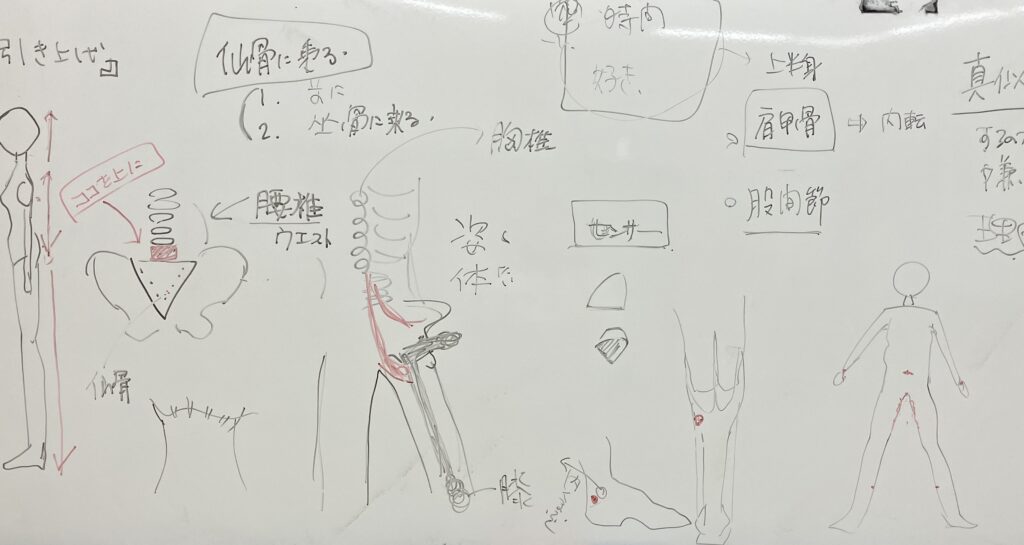 引き上げ』
仙骨に乗る.
1.
2. 坐骨に乗る.
ココを上に
腰椎
ウエスト
仙骨
胸椎
姿
体
膝
時内
好き
上半身
肩甲骨 ⇒ 内転
股関節
センサー
真似
する
嫌
理